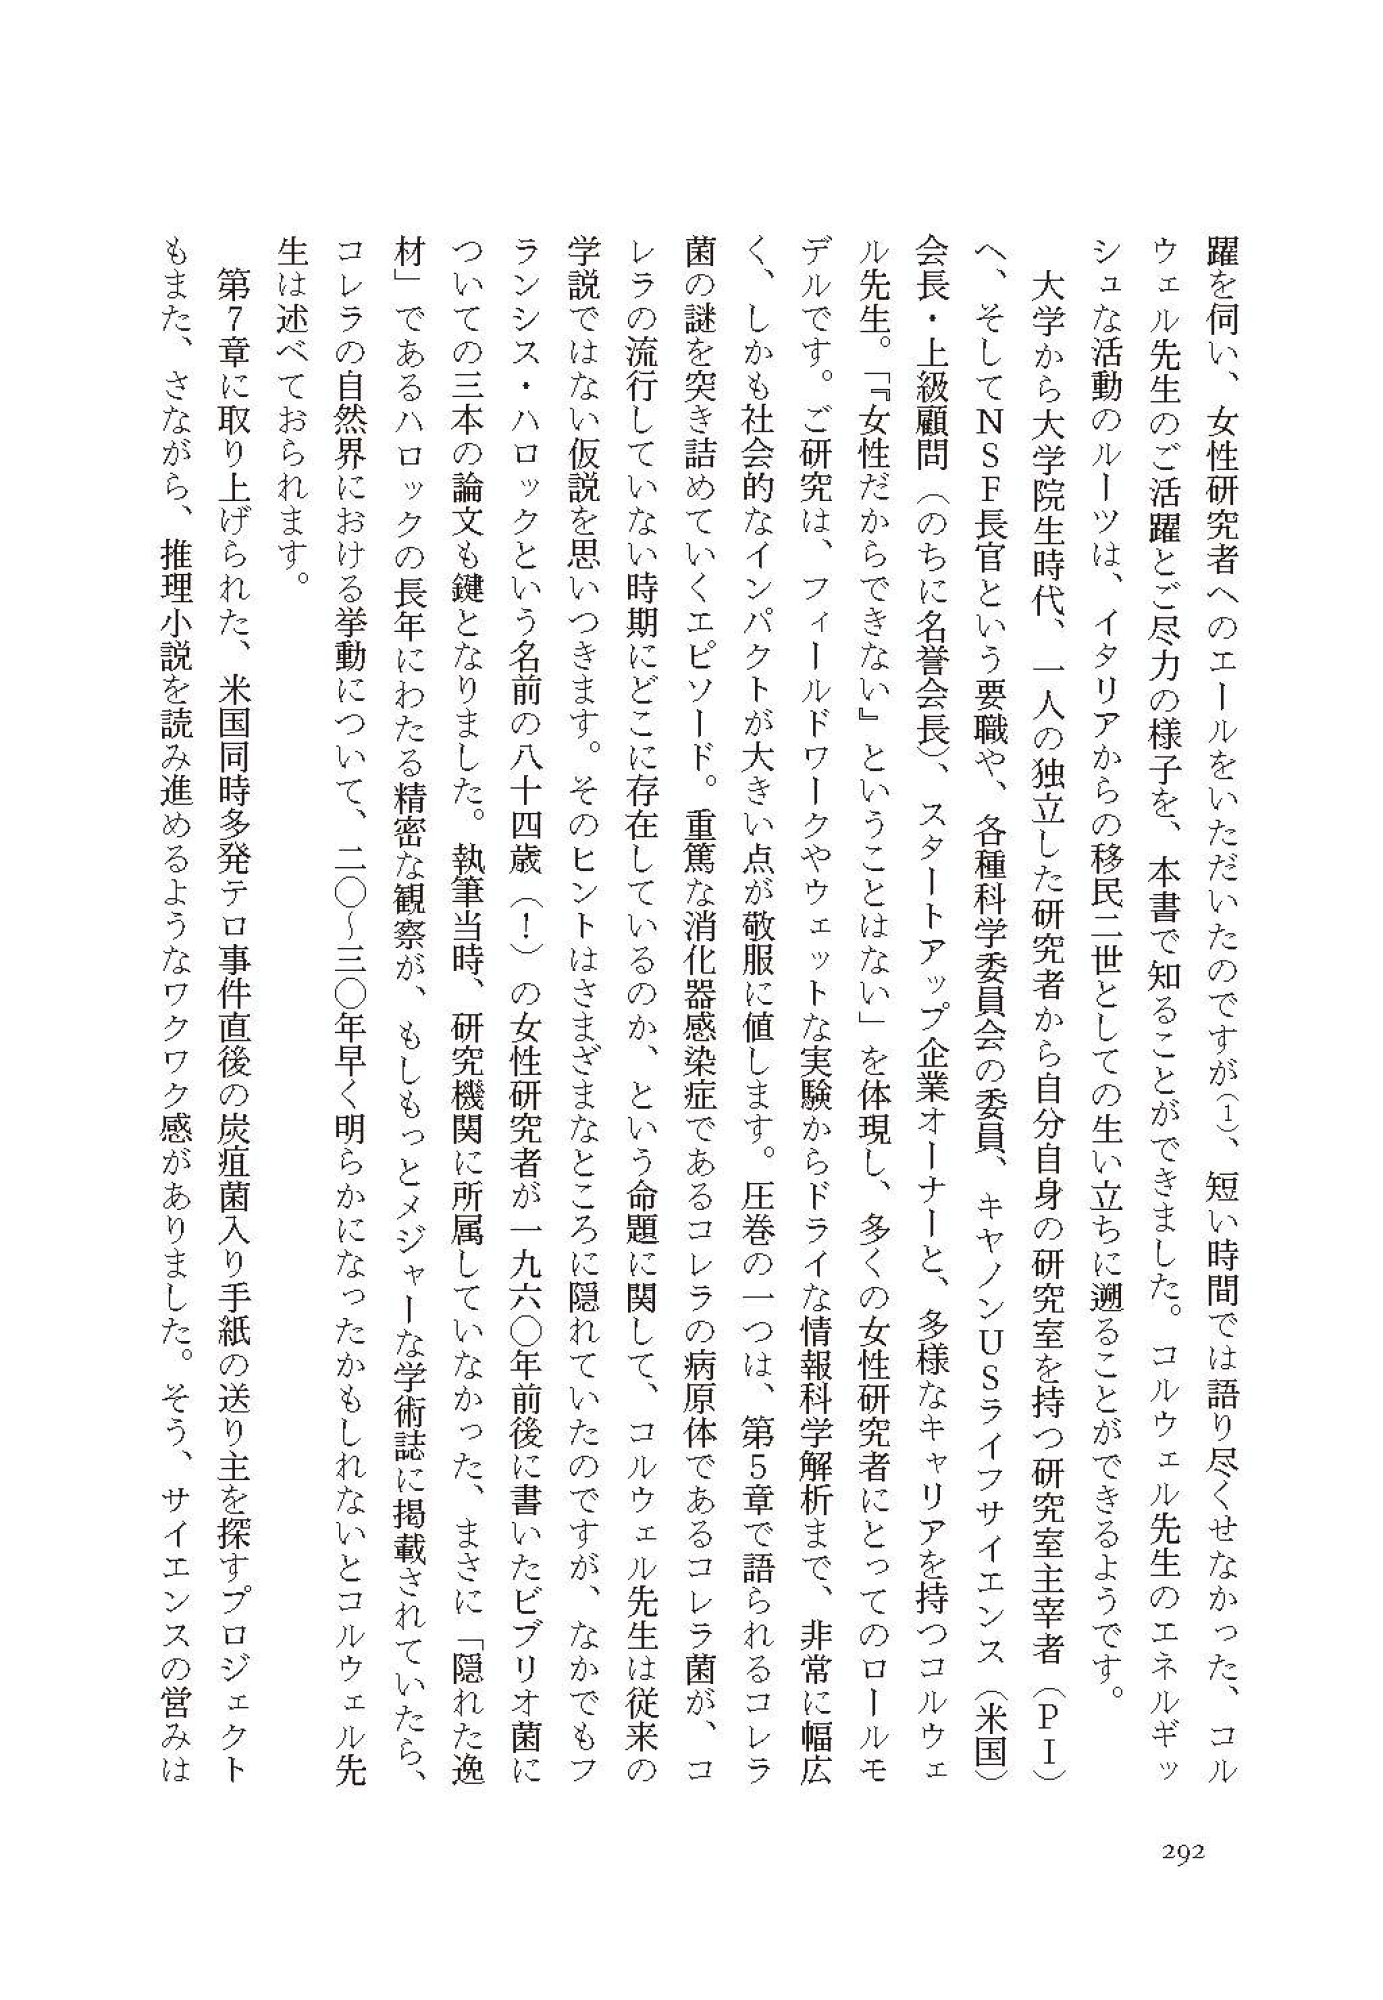 躍を伺い、女性研究者へのエールをいただいたのですが（1）、短い時間では語り尽くせなかった、コル
ウェル先生のご活躍とご尽力の様子を、本書で知ることができました。コルウェル先生のエネルギッ
シュな活動のルーツは、イタリアからの移民二世としての生い立ちに遡ることができるようです。
大学から大学院生時代、一人の独立した研究者から自分自身の研究室を持つ研究室主宰者（ＰＩ）
へ、そしてＮＳＦ長官という要職や、各種科学委員会の委員、キヤノンＵＳライフサイエンス（米国）
会長・上級顧問（のちに名誉会長）、スタートアップ企業オーナーと、多様なキャリアを持つコルウェ
ル先生。「『女性だからできない』ということはない」を体現し、多くの女性研究者にとってのロールモ
デルです。ご研究は、フィールドワークやウェットな実験からドライな情報科学解析まで、非常に幅広
く、しかも社会的なインパクトが大きい点が敬服に値します。圧巻の一つは、第５章で語られるコレラ
菌の謎を突き詰めていくエピソード。重篤な消化器感染症であるコレラの病原体であるコレラ菌が、コ
レラの流行していない時期にどこに存在しているのか、という命題に関して、コルウェル先生は従来の
学説ではない仮説を思いつきます。そのヒントはさまざまなところに隠れていたのですが、なかでもフ
ランシス・ハロックという名前の八十四歳（！）の女性研究者が一九六〇年前後に書いたビブリオ菌に
ついての三本の論文も鍵となりました。執筆当時、研究機関に所属していなかった、まさに「隠れた逸
材」であるハロックの長年にわたる精密な観察が、もしもっとメジャーな学術誌に掲載されていたら、
コレラの自然界における挙動について、二〇〜三〇年早く明らかになったかもしれないとコルウェル先
生は述べておられます。
第７章に取り上げられた、米国同時多発テロ事件直後の炭疽菌入り手紙の送り主を探すプロジェクト
もまた、さながら、推理小説を読み進めるようなワクワク感がありました。そう、サイエンスの営みは
292